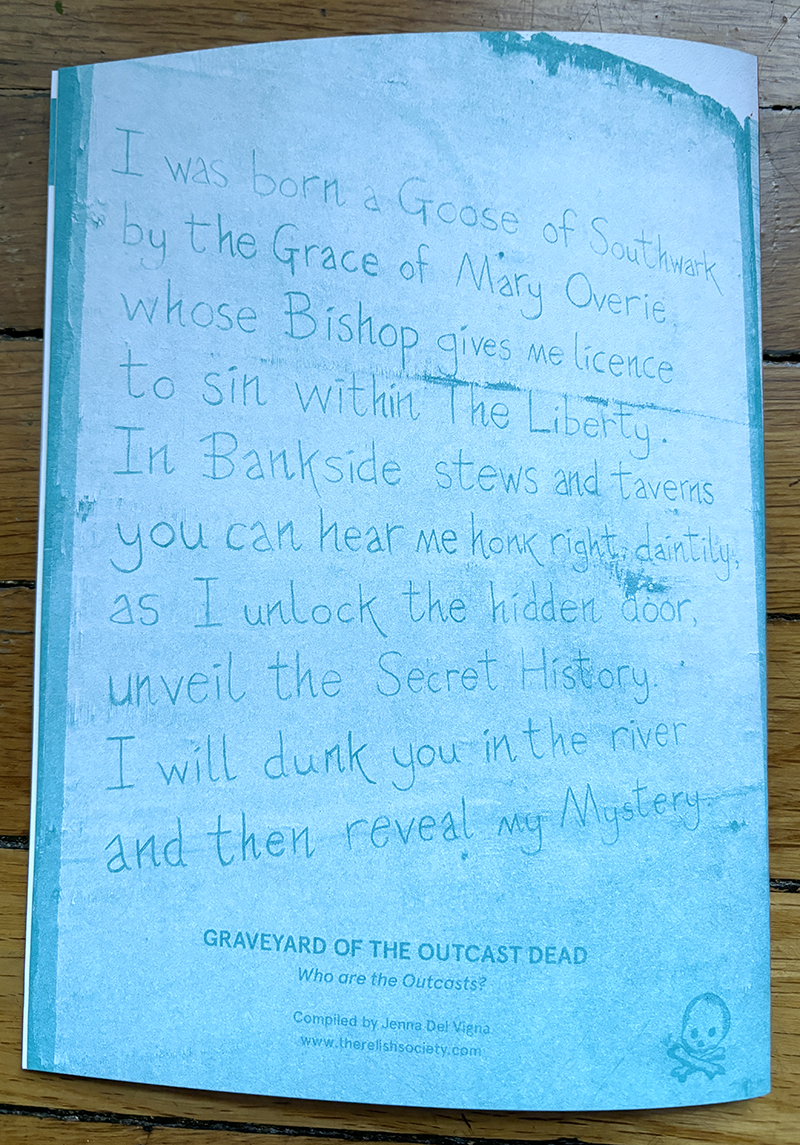 I was born a Goose of Southwark
by the Grace of Mary Overie,
whose Bishop gives me licence
to sin within The Liberty.
In Bankside stews and taverns
you can hear me honk right daintily,
as I unlock the hidden door,
unveil the Secret History.
I will dunk you in the river
and then reveal my Mystery.
GRAVEYARD OF THE OUTCAST DEAD
Who are the Outcasts?
Compiled by Jenna Del Vigna
www.therelishsociety.com